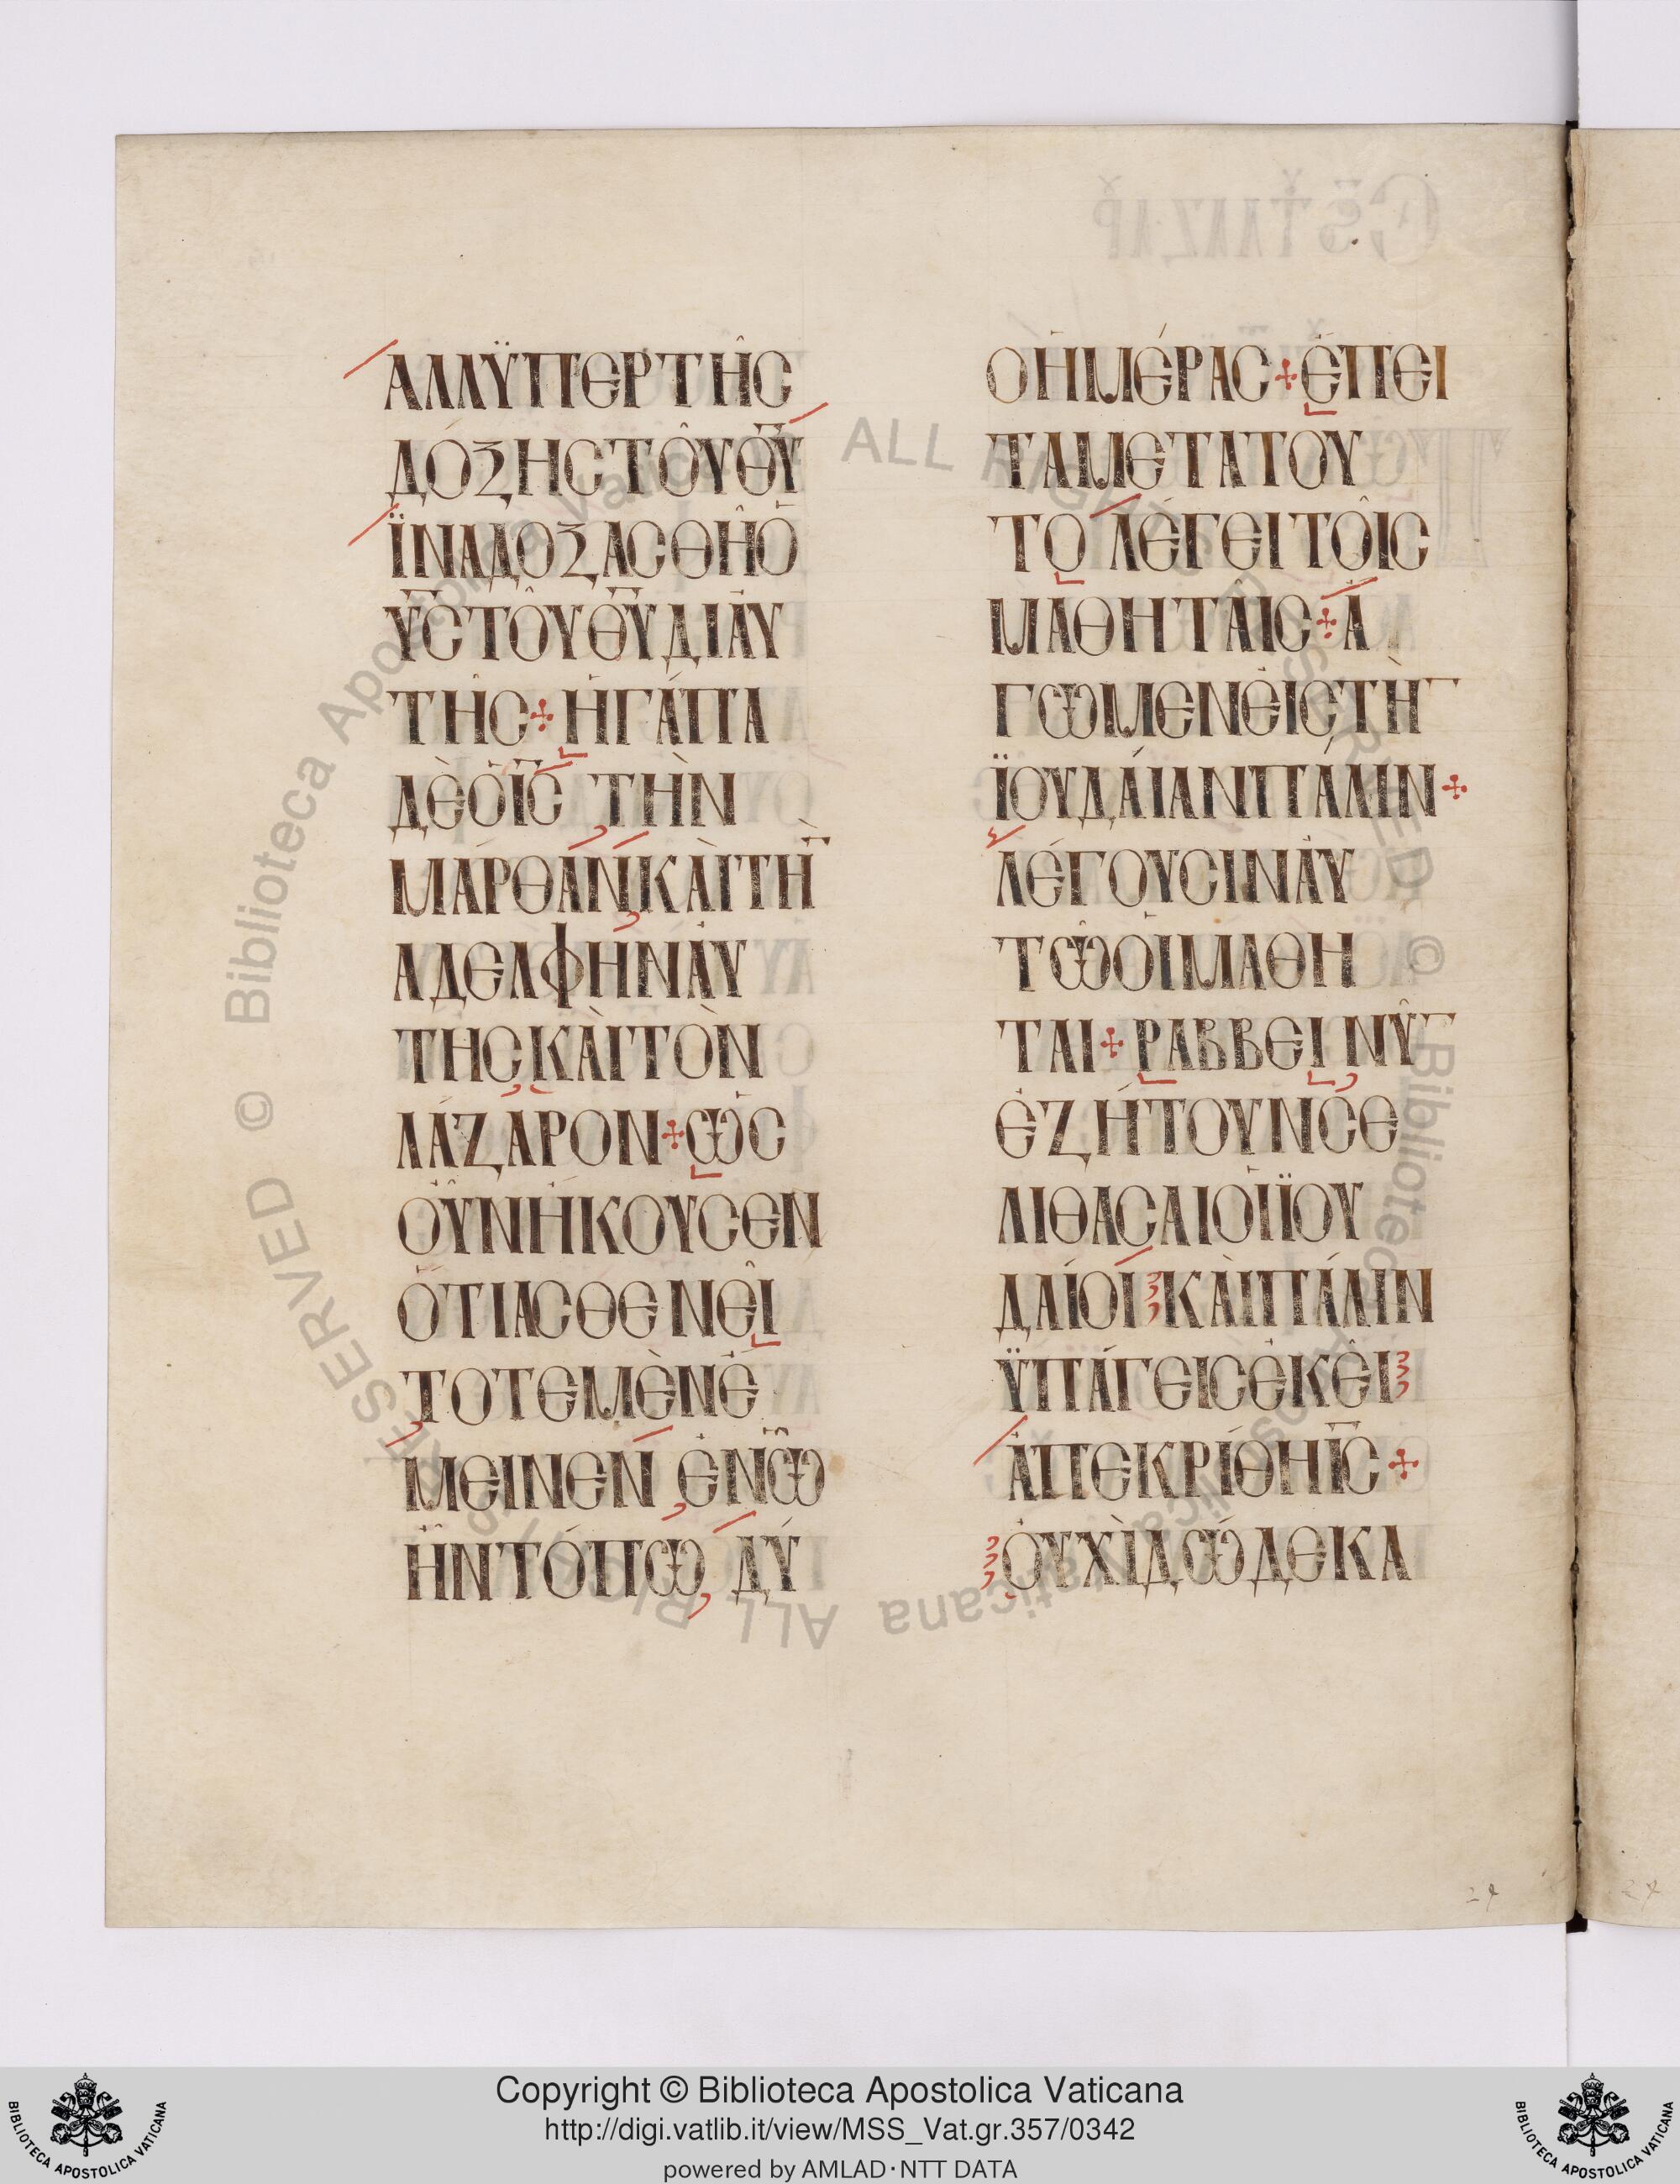 ΑΛΛΫΠΕΡΤΗ͂Ϲ
ΔΌΞΗϹΤΟΥ͂Θ̅Υ̅
ΪΝΑΔΟΞΑϹΘΗ͂Ὁ
Υ̅Ϲ̅ΤΟΥ͂Θ̅Υ̅ΔΙΑΥ
ΤΗ͂Ϲ⁘ΗΓΆΠΑ
ΔῈὉΙ̅Ϲ̅ΤῊΝ
ΜΆΡΘΑΝΚΑῚΤῊ̅
ΑΔΕΛΦΗΝΑΥ
ΤΗϹΚΑῚΤῸΝ
ΛΆΖΑΡΟΝ⁘ὩϹ
ΟΥ͂ΝΉΚΟΥϹΕΝ
ὍΤΙΑϹΘΕΝΕΙ͂
ΤΟΤΕΜῈΝἘ
ΜΕΙΝΕΝἘΝΩ͂
ΗΝΤΌΠΩΔΎ
ΟἩΜΈΡΑϹ⁘ἘΠΕΙ
ΤΑΜΕΤΑΤΟΥ
ΤΟΛΈΓΕΙΤΟΙ͂Ϲ
ΜΑΘΗΤΑΙ͂Ϲ⁘Ἄ
ΓΩΜΕΝἘΙϹΤῊ̅
ΪΟΥΔΆΙΑΝΠΆΛΙΝ⁘
ΛΈΓΟΥϹΙΝΑΥ
ΤΩ͂ὉΙΜΑΘΗ
ΤΑΙ⁘ΡΑΒΒΕΙΝΥ͂̅
ἘΖΉΤΟΥΝϹΕ
ΛΙΘΑϹΑΙὉΙΪΟΥ
ΔΑΊΟΙΚΑῚΠΆΛΙΝ
ΫΠΆΓΕΙϹἘΚΕΙ͂
ἈΠΕΚΡΊΘΗΙ̅Ϲ̅⁘
ὈΥΧῚΔΏΔΕΚΑ
Copyright © Biblioteca Apostolica Vaticana
http://digi.vatlib.it/view/MSS_Vat.gr.357/0342
powered by AMLAD·NTT DATA
BIBLIOTECA APOSTOLICA VATICANA
BIBLIOTECA APOSTOLICA VATICANA